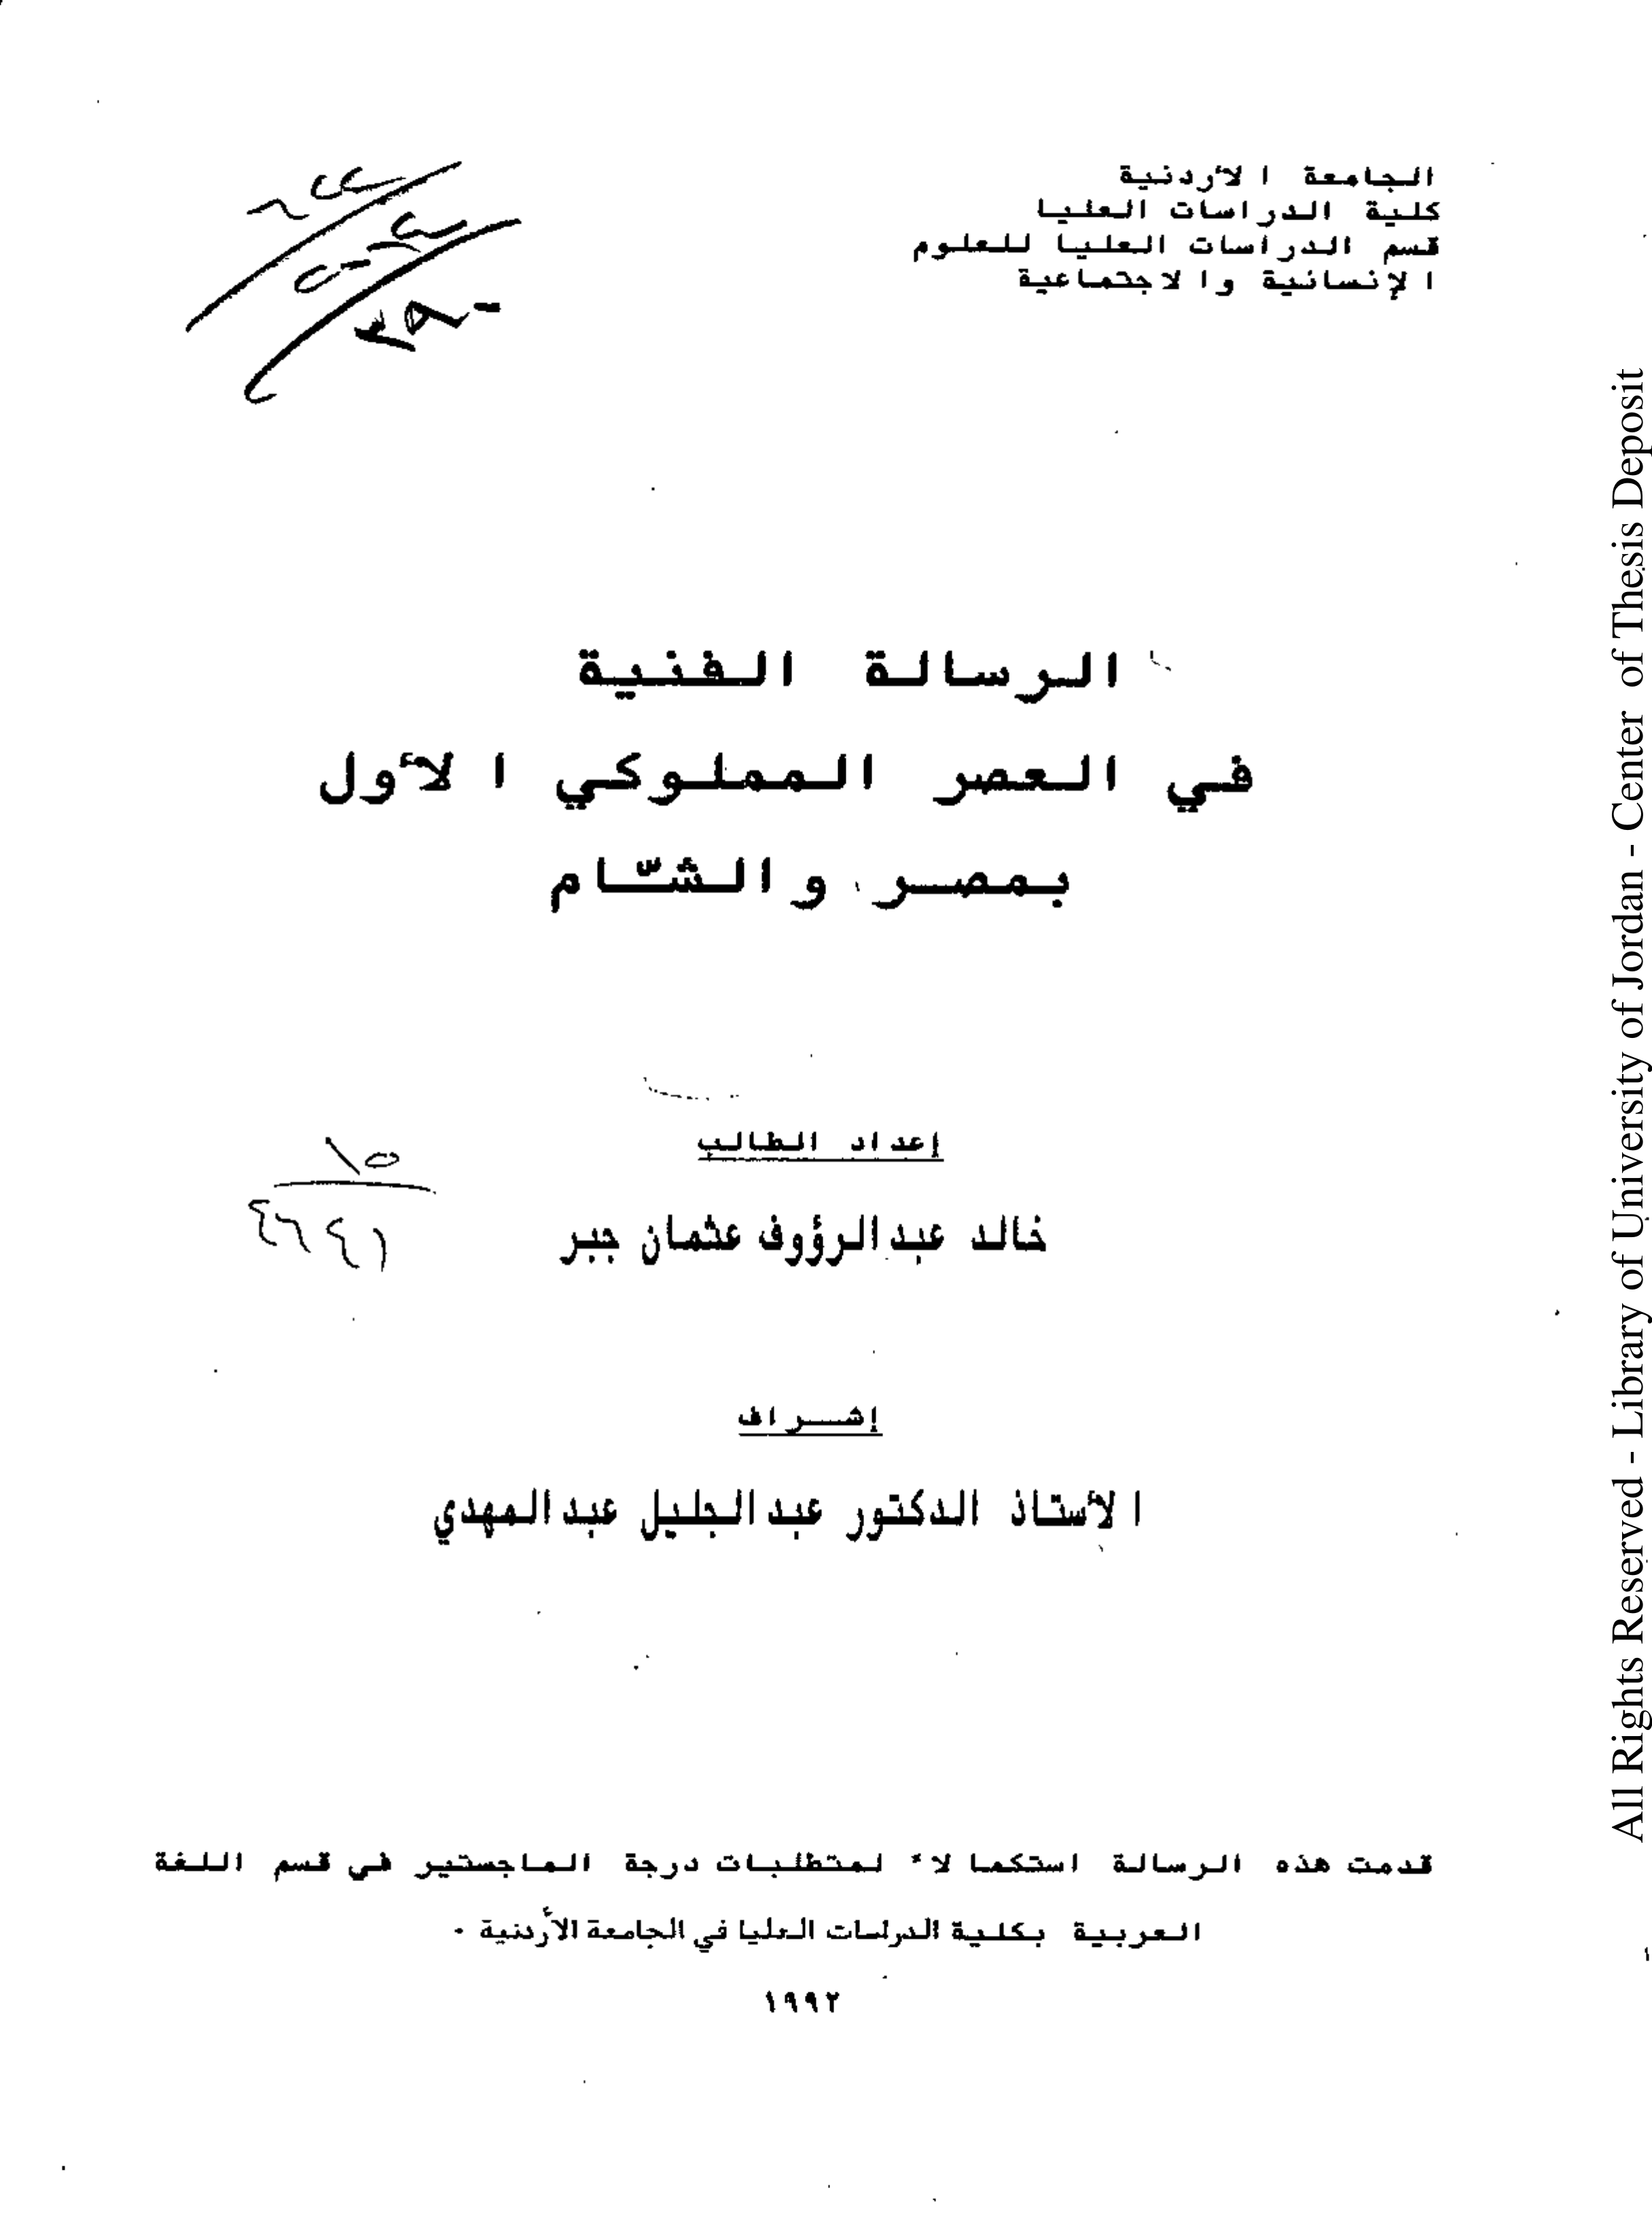 الجامعة الأردنية
كلية الدراسات العليا
قسم الدراسات العليا للعلوم
الإنسانية والاجتماعية
الرسالة الفنية
في العصر المملوكي الأول
بمصر والشّام
إعداد الطالب
خالد عبدالرؤوف عثمان جبر
إشراف
الأستاذ الدكتور عبدالجليل عبدالمهدي
قدمت هذه الرسالة استكمالاً لمتطلبات درجة الماجستير في قسم اللغة
العربية بكلية الدراسات العليا في الجامعة الأردنية .
١٩٩٢
All Rights Reserved - Library of University of Jordan - Center of Thesis Deposit